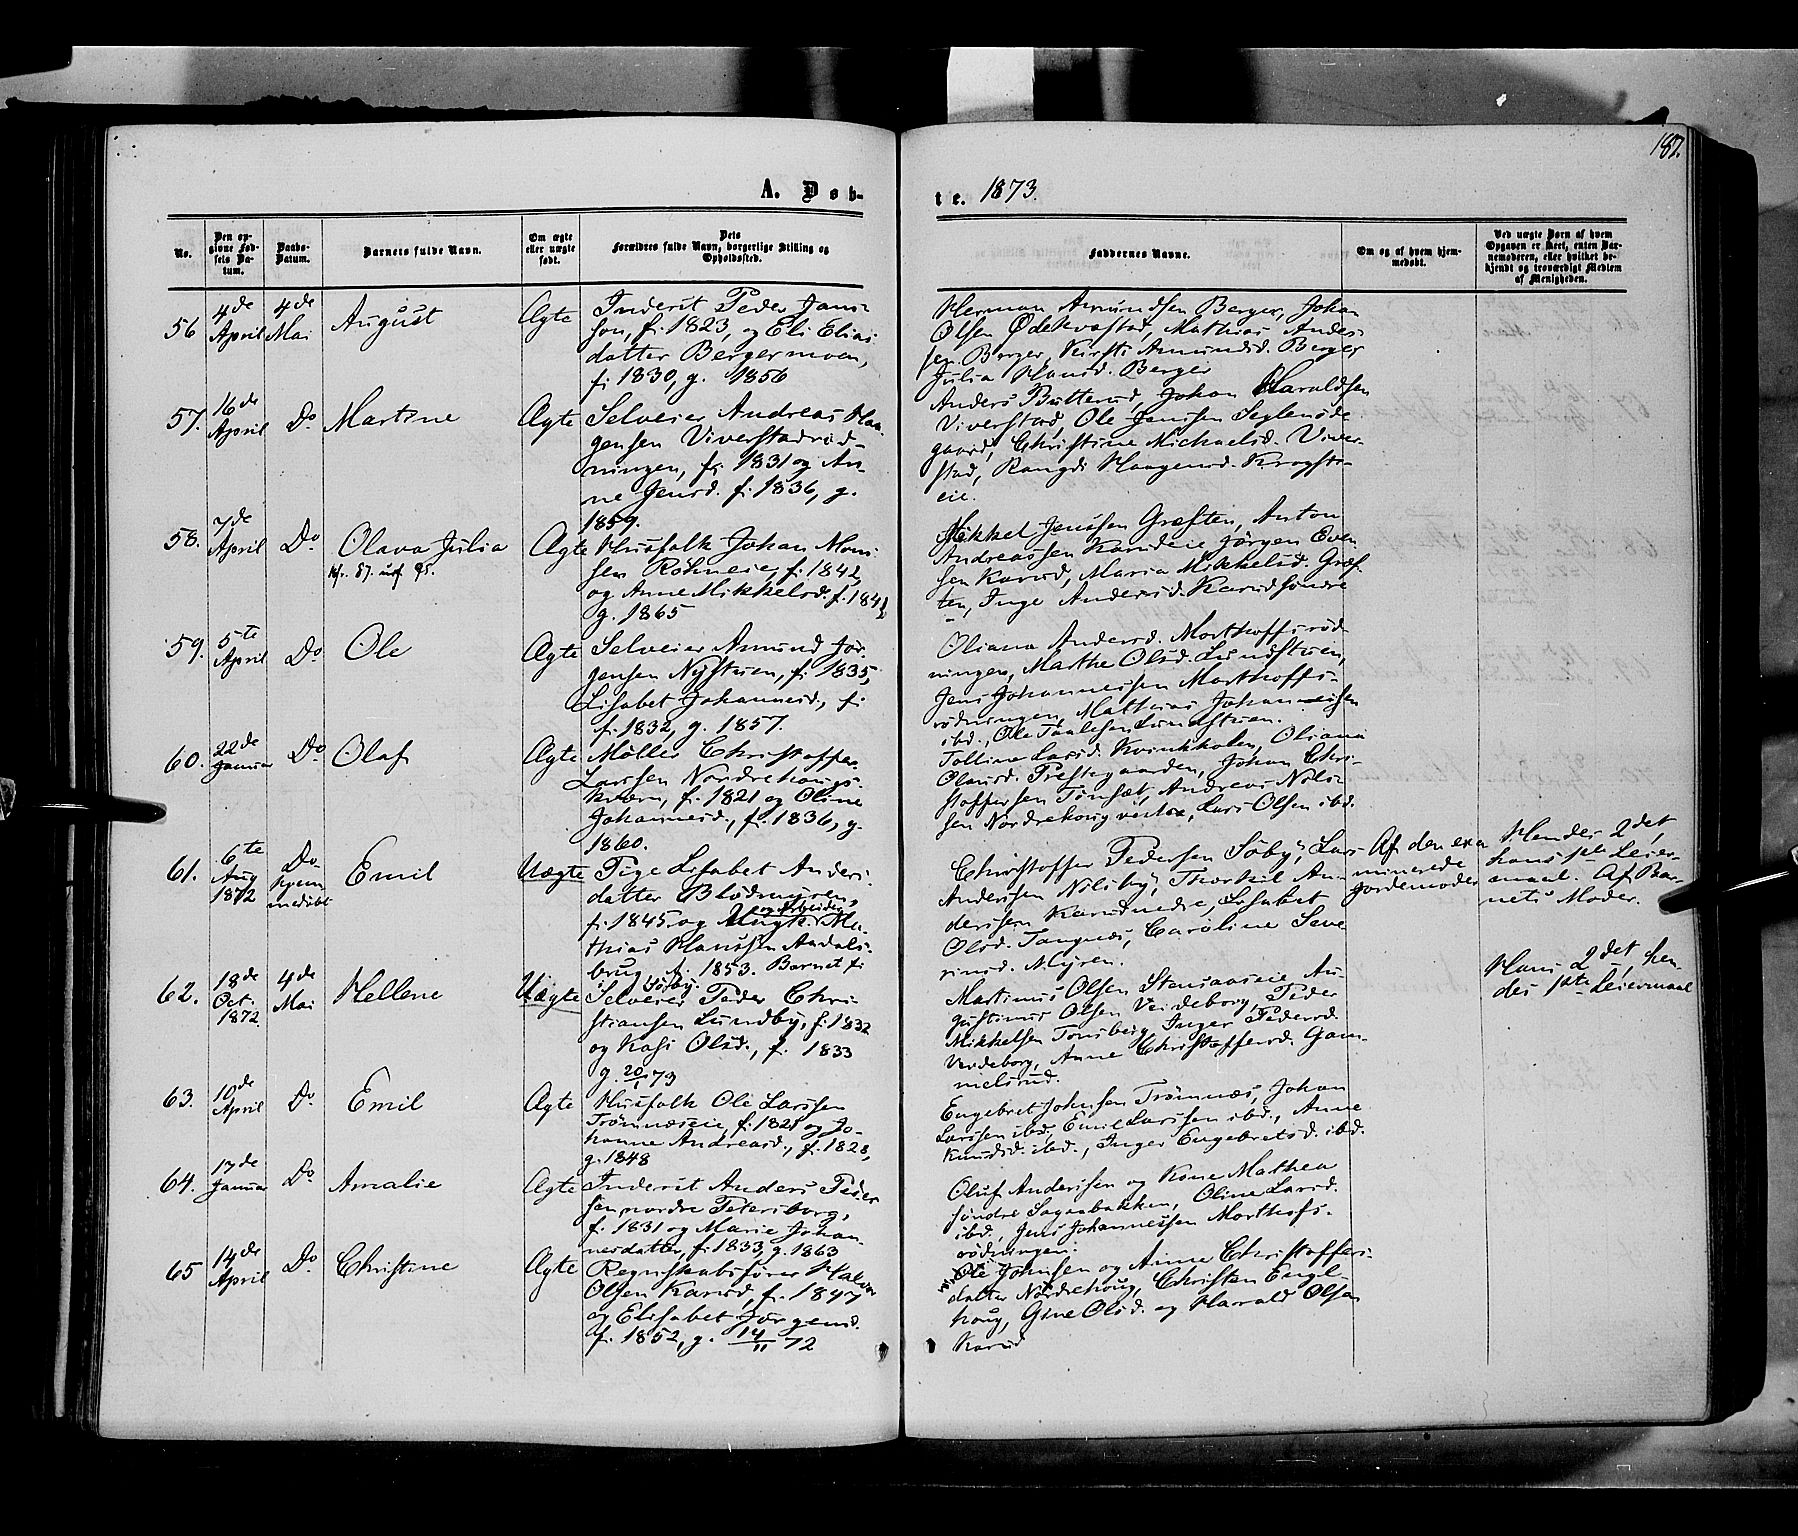 187.
A. Døb-
te. 1873.
No.
Den op-
givne Fød-
sels Da-
tum.
Daabs-
Datum.
Barnets fulde Navn.
Om ægte
eller uægte
født.
Dets
Forældres fulde Navn, borgerlige Stilling og
Opholdssted.
Faddernes Navne.
Om og af hvem hjem-
medøbt.
Ved uægte Børn af hvem
Opgaven er skeet, enten Bar-
nemoderen, eller hvilket be-
kjendt og troværdigt Medlem
af Menigheden.
56
4de
April
4de
Mai
August
Ægte
Inderst Peder Jans-
sen, f. 1823, og Eli Elias-
datter Bergermoen,
f. 1830, g. 1856
Herman Amundsen Berger, Johan
Olsen Ødekvastad, Mathias Anders-
sen Berger, Kirsti Amundsd. Berger
Julia Hansd. Berger
57.
16de
April
Do
Martine
Ægte
Selveier Andreas Haa-
gensen Viverstadrød-
ningen, f. 1831 og An-
ne Jensd. f. 1836, g.
1859.
Anders Butterud, Johan Haraldsen
Viverstad, Ole Jenssen Seglensøde-
gaard, Christine Michaelsd. Viver-
stad, Rangdi Haagensd. Krogsta-
eie.
58.
7de
April
Do
Olava Julia
Kfr. 87. utf. 95.
Ægte
Husfolk Johan Mons-
sen Røhneeie, f. 1842,
og Anne Mikkelsd. f. 1842
g. 1865
Mikkel Jenssen Græften, Anton
Andreassen Karudeie Jørgen Even-
sen Karud, Maria Mikkelsd. Græf-
ten, Inge Andersd. Karud søndre
59.
5te
April
Do
Ole
Ægte
Selveier Amund Jør-
gensen Nystuen, f. 1835,
Lisabet Johannesd., f.
f. 1832, g. 1857.
Oliana Andersd. Morthoffsrød-
ningen, Marthe Olsd. Lundstuen,
Jens Johannessen Morthoffs-
rødningen, Mathias Johannessen
ibd., Ole Paulsen Lundstuen.
60.
22de
Januar
Do
Olaf
Ægte
Møller Christoffer
Larssen Nordrehougs-
kværn, f. 1821 og Oline
Johannesd., f. 1836, g.
1860.
Tolline Larsd. Kvinkholen, Oliana
Olausd. Prestegaarden, Johan Chri-
stoffersen Tønsæt, Andreas Nils-
sen Nordrehoug vestre, Lars Olsen ibd.
61.
6te
Aug
1872
Do
Hjem-
medøbt
Emil
Uægte
Pige Lisabet Anders-
datter Blødmyren,
f. 1845 og Ungk. og Arbeider Ma-
thias Hanssen Aadals-
brug, f. 1853. Barnet f. i
Søby.
Christoffer Pedersen Søby, Lars
Anderssen Nilsby, Thorkil An-
derssen Karudnedre, Lisabet
Olsd. Tangnæs, Caroline Seve
rinsd. Myren.
Af den exa
minerede
Jordemoder
Hendes 2det,
hans 1ste Leier-
maal. Af Bar-
nets Moder.
62.
18de
Oct.
1872.
4de
Mai
Hellene
Uægte
Selveier Peder Chri-
stiansen Lundby, f. 1832
og Kasi Olsd., f. 1833
g. 20/1 73
Martinus Olsen Stensaaseie Au-
gustinus Olsen Verdeborg, Peder
Mikkelsen Tonsberg, Inger Pedersd.
Verdeborg, Anne Christoffersd. Gam-
melsrud.
Hans 2det, hen-
des 1ste Leiermaal
63.
10de
April
Do
Emil
Ægte
Husfolk Ole Larssen
Trømnæseie, f. 1821 og Jo-
hanne Andreasd., f. 1828,
g. 1848
Engebret Johnsen Trømnæs, Johan
Larssen ibd, Emil Larssen ibd., Anne
Knudsd. ibd., Inger Engebretsd. ibd.
64.
17de
Januar
Do
Amalie
Ægte
Inderst Anders Peder
sen nordre Petersborg,
f. 1831 og Marie Johan-
nesdatter, f. 1833, g. 1863
Oluf Anderssen og Kone Mathea
søndre Sagaabakken, Oline Larsd.
ibd., Jens Johannessen Morthofs-
rødningen.
65
14de
April
Do
Christine
Ægte
Regnskabsfører Halvor
Olsen Karud, f. 1847
og Elisabet Jørgensd.
f. 1852, g. 14/11 72
Ole Johnsen og Anne Christoffers-
datter Nordrehoug, Christen Engel-
houg, Gine Olsd. og Harald Olsen
Karud